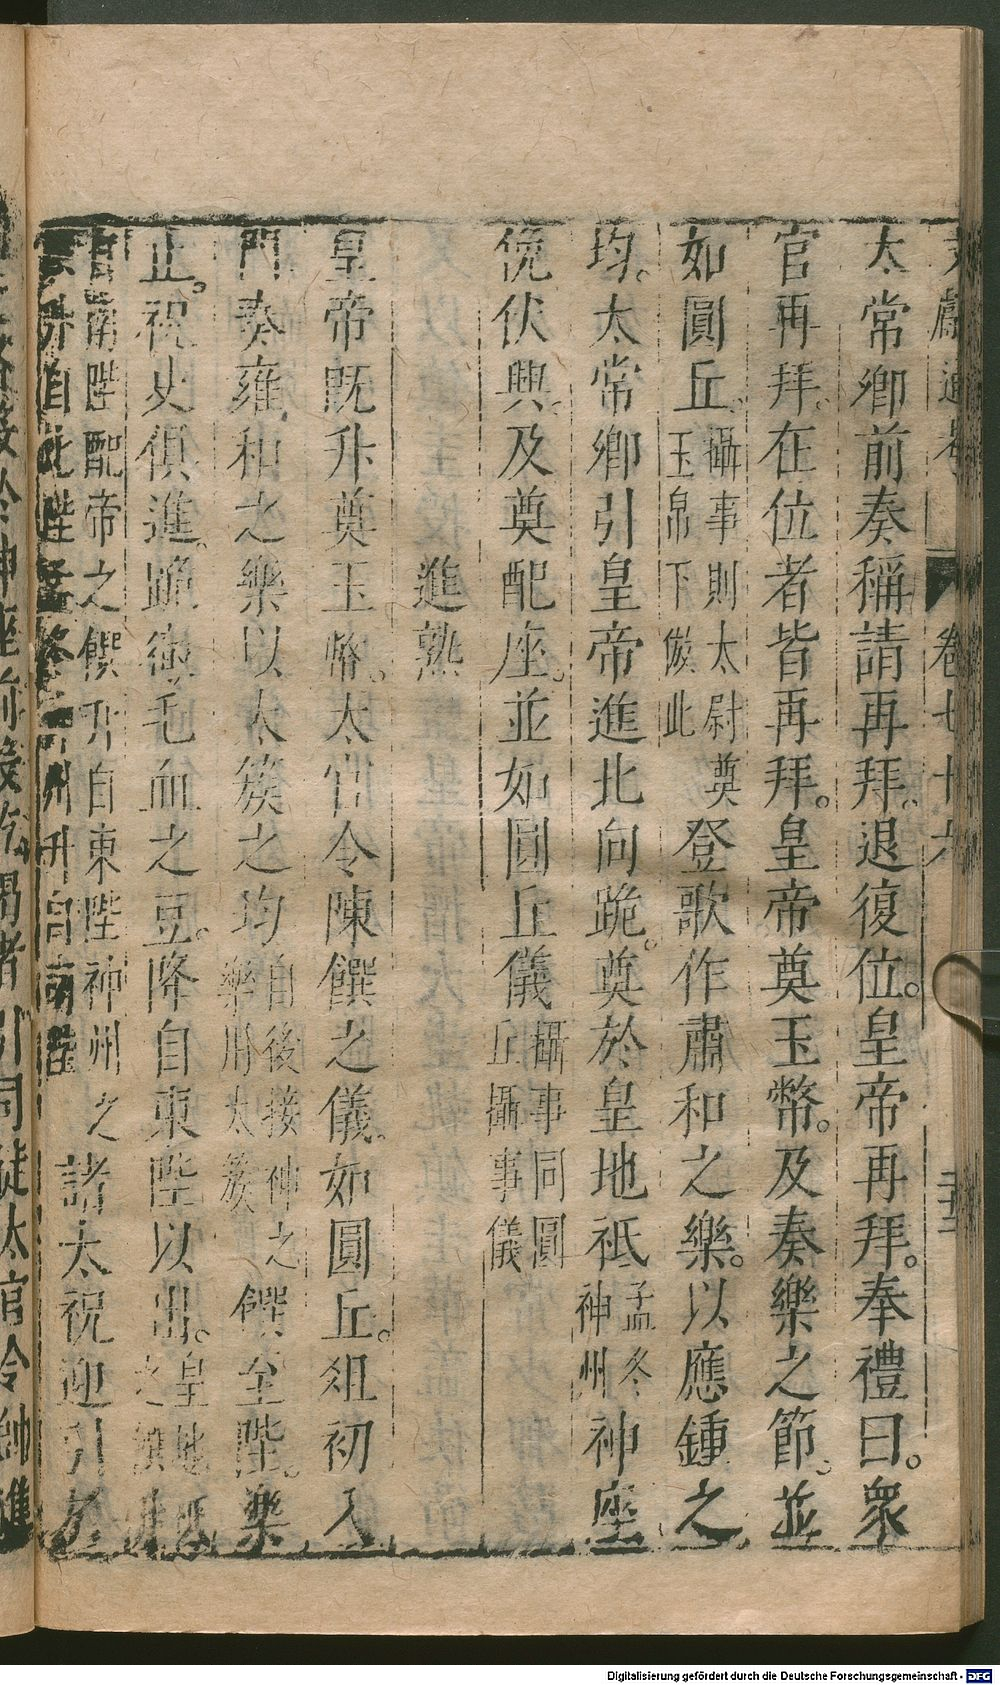 文獻通考 卷七十六
太常卿前奏稱請再拜。退復位。皇帝再拜。奉禮曰。衆
官再拜。在位者皆再拜。皇帝奠玉幣。及奏樂之節。並
如圓丘。攝事則太尉奠玉帛下倣此登歌作肅和之樂。以應鍾之
均。太常卿引皇帝進北向跪。奠於皇地祇孟冬神州神座
俛伏興。及奠配座。並如圓丘儀攝事同圓丘攝事儀
進熟
皇帝既升奠玉幣。太官令陳饌之儀。如圓丘。俎初入
門奏雍和之樂以太簇之均自後接神之樂用太簇饌至陛。樂
止。祝史俱進。跪徹毛血之豆。降自東陛以出。皇地祇之饌升
自南陛配帝之饌升自東陛神州之升自北陛
州升自南陛諸太祝迎引於
神座前
謁者引司徒太官令帥進
Digitalisierung gefördert durch die Deutsche Forschungsgemeinschaft - DFG